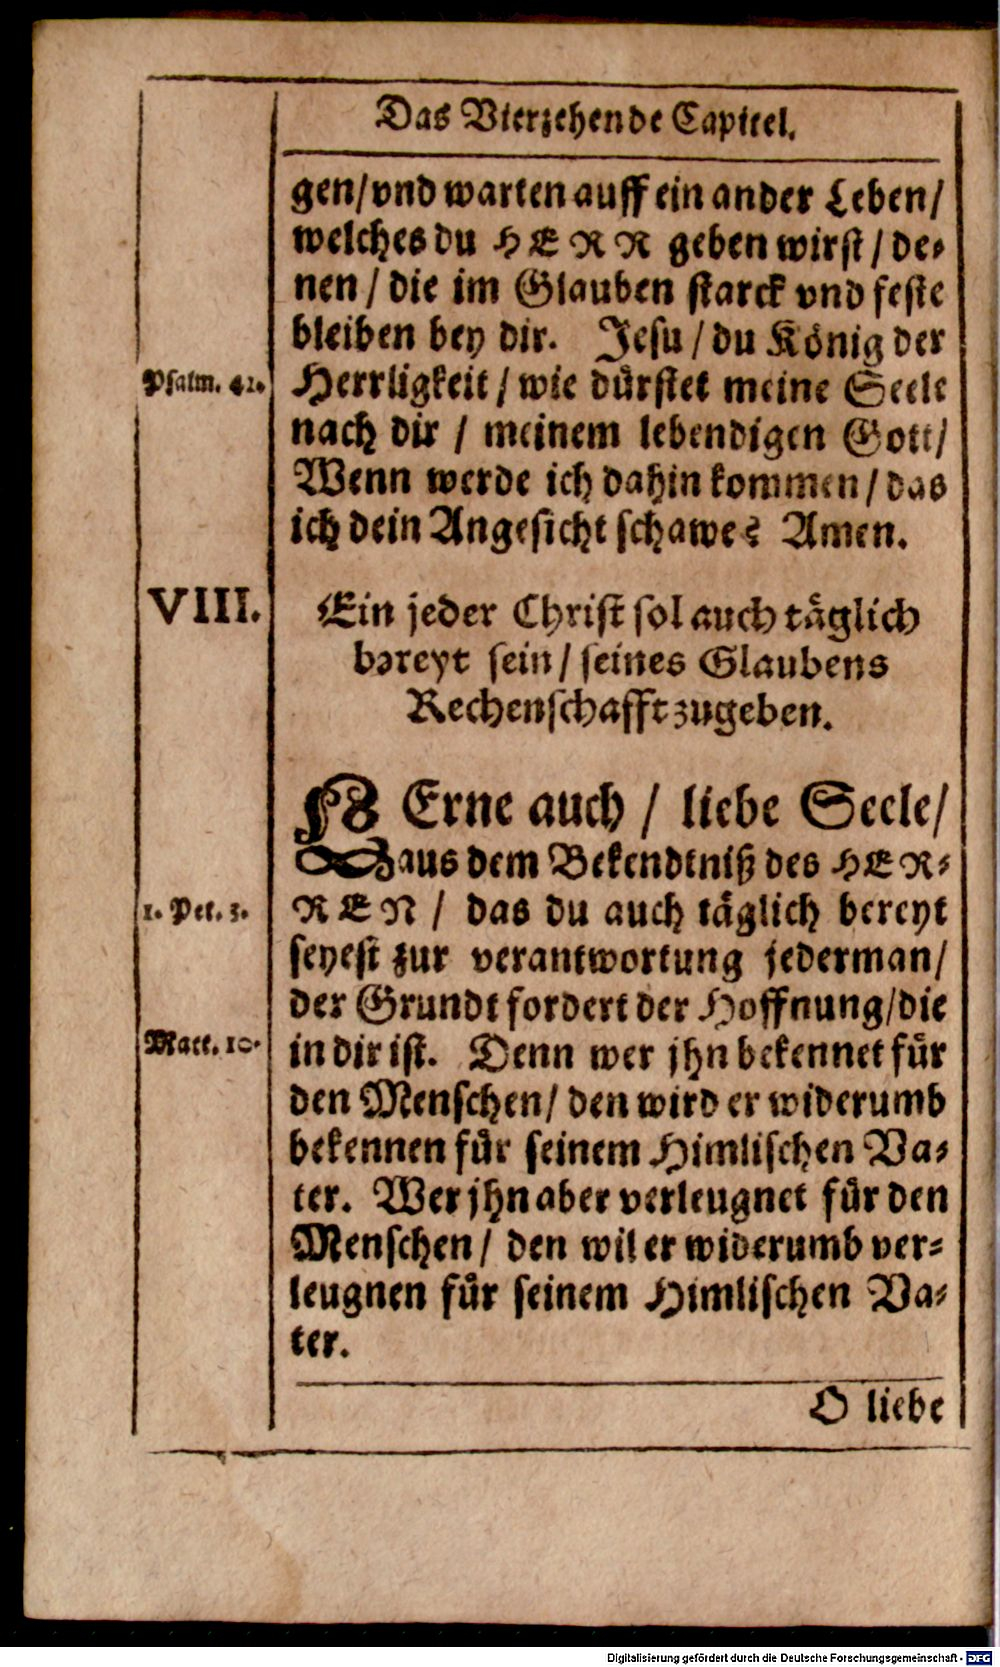 Das Vierzehende Capitel.
gen/vnd warten auff ein ander Leben/
welches du HERR geben wirst/de-
nen/die im Glauben starck vnd feste
bleiben bey dir. Jesu/du König der
Psalm. 42. Herrligkeit/wie dürstet meine Seele
nach dir/meinem lebendigen Gott/
Wenn werde ich dahin kommen/das
ich dein Angesicht schawe? Amen.
VIII. Ein jeder Christ sol auch täglich
bereyt sein/seines Glaubens
Rechenschafft zugeben.
LErne auch/liebe Seele/
aus dem Bekendtniß des HER-
1. Pet. 3. REN/das du auch täglich bereyt
seyest zur verantwortung jederman/
der Grundt fordert der Hoffnung/die
Matt. 10. in dir ist. Denn wer jhn bekennet für
den Menschen/den wird er widerumb
bekennen für seinem Himlischen Va-
ter. Wer jhn aber verleugnet für den
Menschen/den wil er widerumb ver-
leugnen für seinem Himlischen Va-
ter.
O liebe
Digitalisierung gefördert durch die Deutsche Forschungsgemeinschaft - DFG